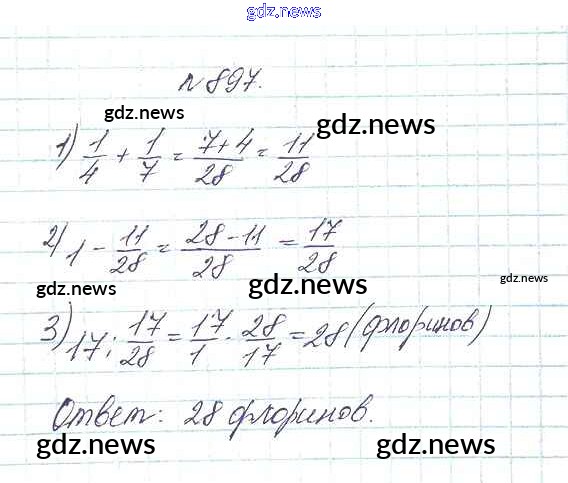 gdz.news
№ 897.
gdz.news
gdz.news
1) 1/4 + 1/7 = (7+4)/28 = 11/28
2) 1 - 11/28 = (28-11)/28 = 17/28
gdz.news
gdz.news
3) 17 : 17/28 = 17/1 · 28/17 = 28 (флоринов)
gdz.news
Ответ: 28 флоринов.
gdz.news
gdz.news
gdz.news